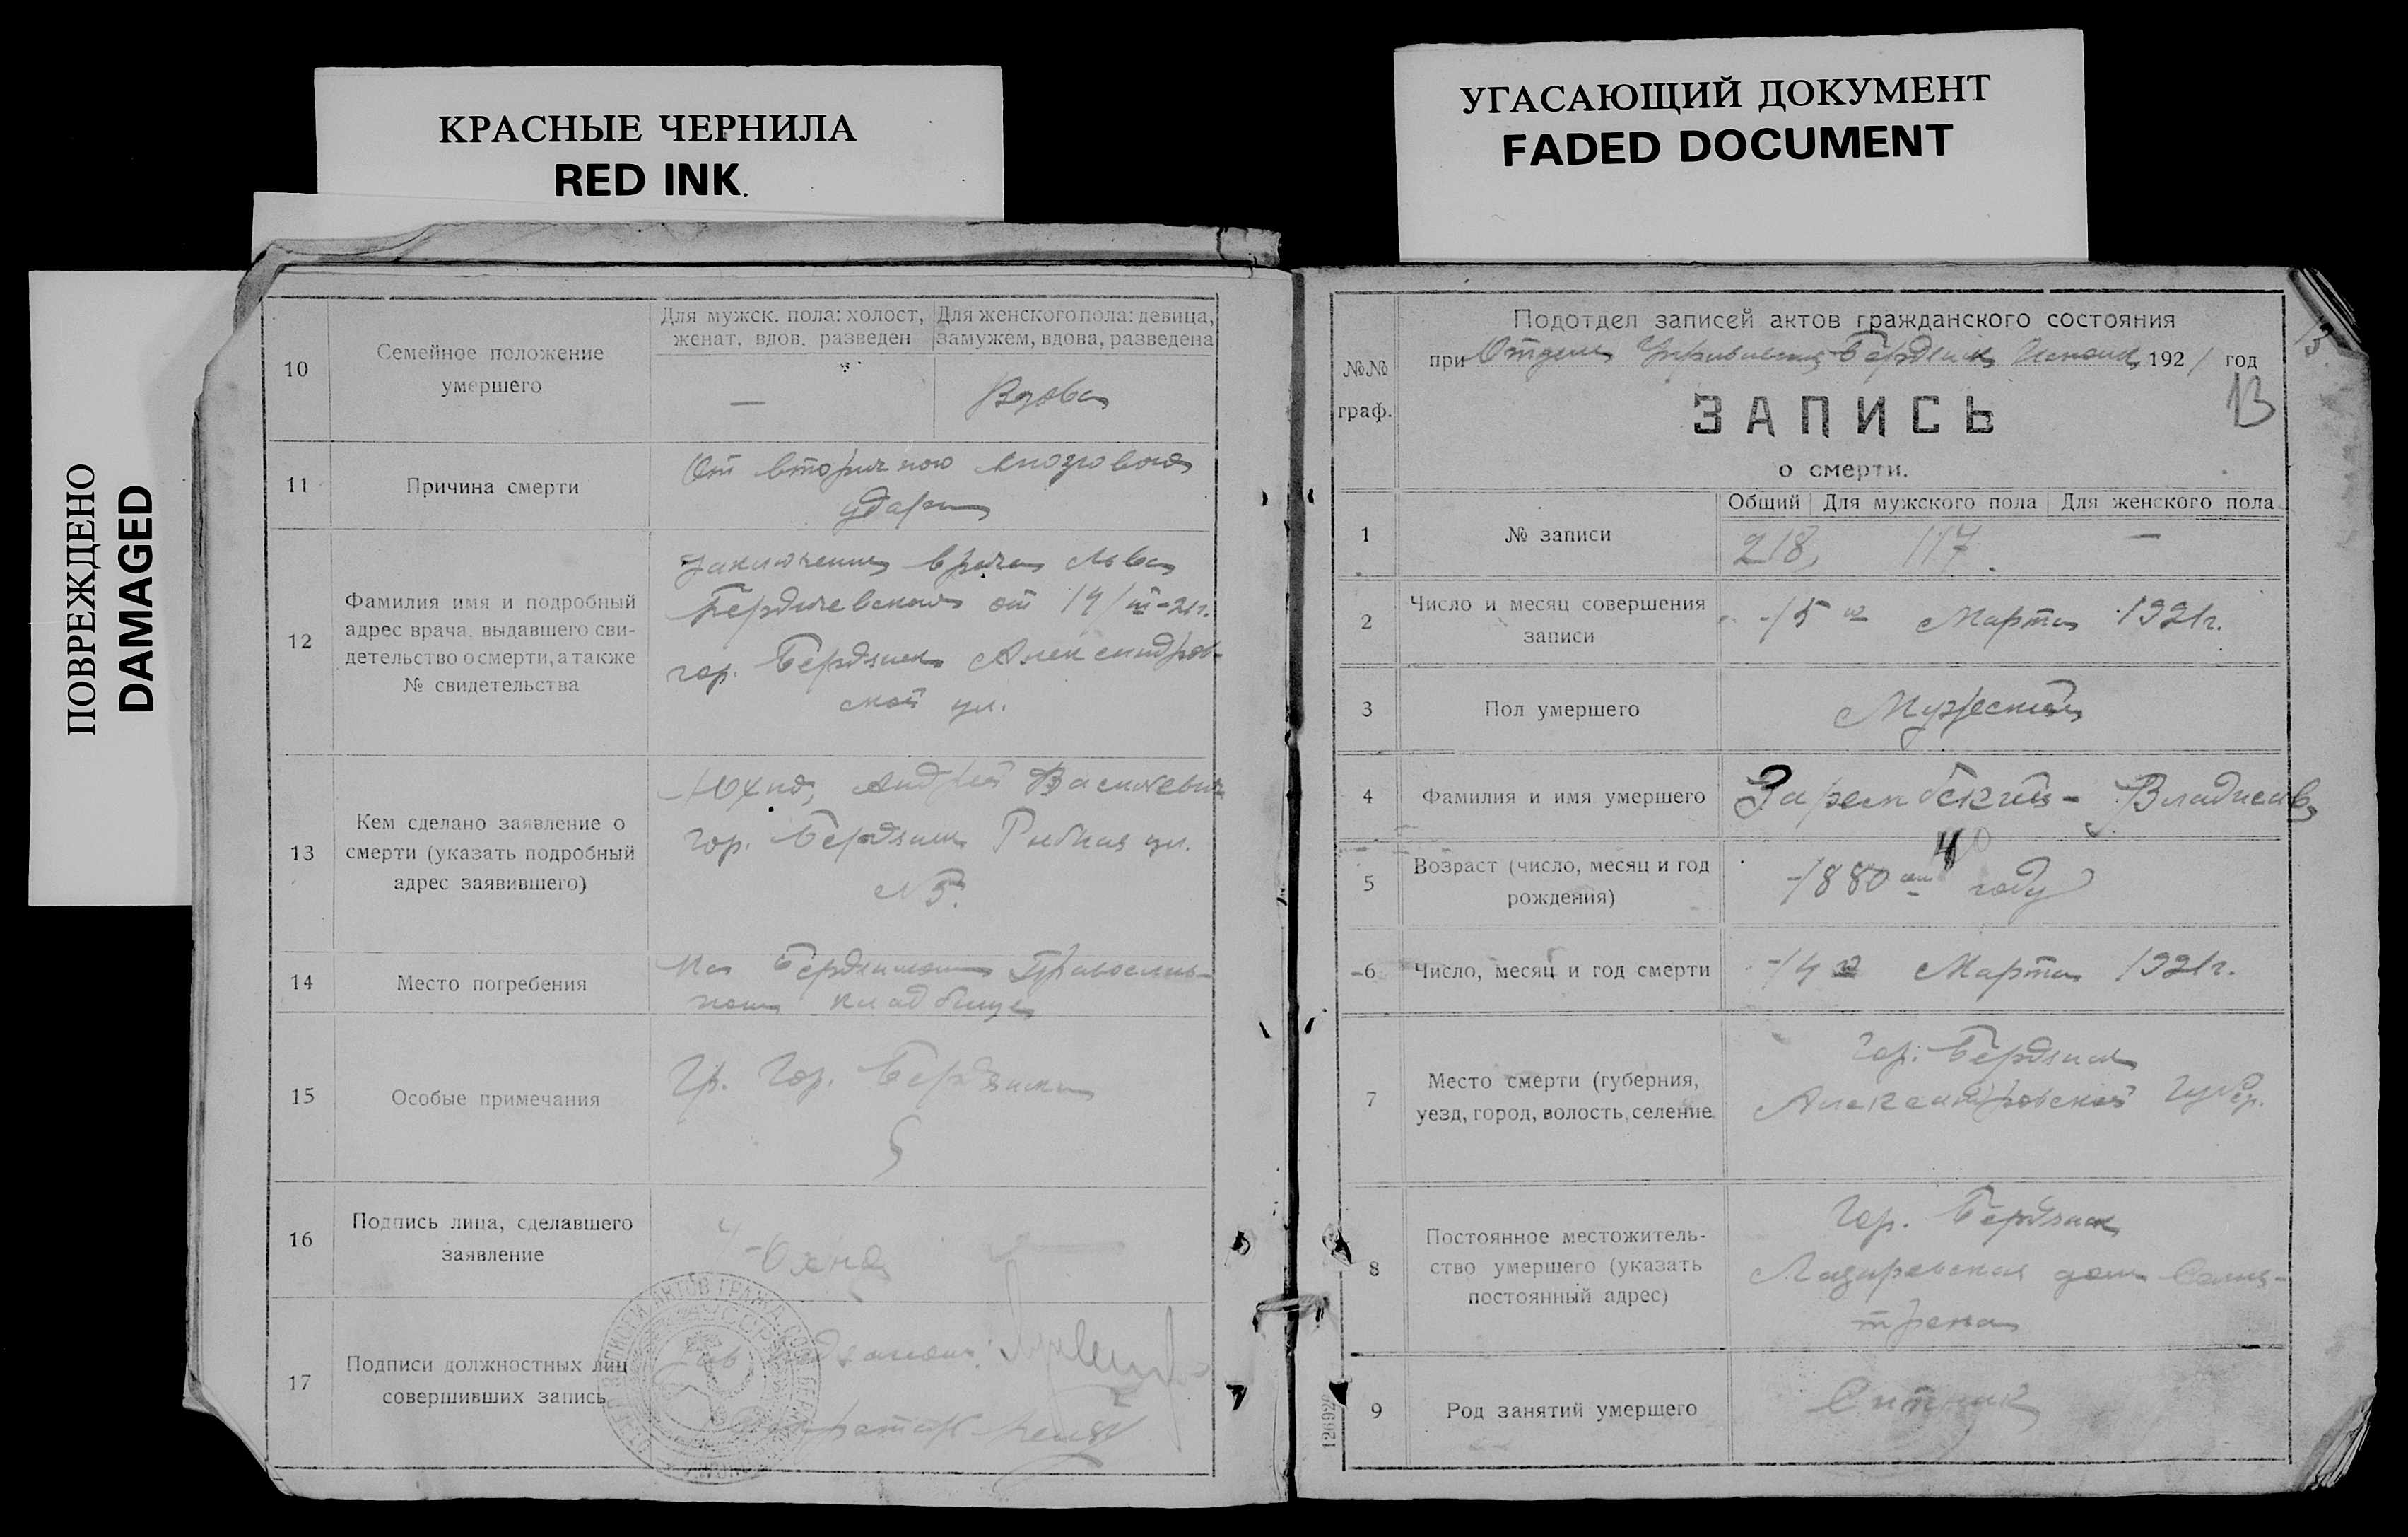 КРАСНЫЕ ЧЕРНИЛА
RED INK.
УГАСАЮЩИЙ ДОКУМЕНТ
FADED DOCUMENT
ПОВРЕЖДЕНО
DAMAGED
10
Семейное положение
умершего
Для мужск. пола: холост,
женат, вдов, разведен
Для женского пола: девица,
замужем, вдова, разведена
—
Вдова
11
Причина смерти
От вторичного мозгового
удара
12
Фамилия имя и подробный
адрес врача, выдавшего сви-
детельство о смерти, а также
№ свидетельства
Заключение врача Льва
Бердичевского от 14/III-21г.
гор. Бердянск Александров-
ской ул.
13
Кем сделано заявление о
смерти (указать подробный
адрес заявившего)
Юхно, Андрей Васильевич
гор. Бердянск Рыбная ул.
14
Место погребения
На Бердянском Православ-
ном кладбище
15
Особые примечания
Гр. Гор. Бердянска
16
Подпись лица, сделавшего
заявление
17
Подписи должностных лиц
совершивших запись
№№
граф.
Подотдел записей актов гражданского состояния
при Отделе Управления Бердянск 1921 год
13
ЗАПИСЬ
о смерти.
1
№ записи
Общий Для мужского пола Для женского пола
218, 117. —
2
Число и месяц совершения
записи
15го Марта 1921г.
3
Пол умершего
Мужской
4
Фамилия и имя умершего
Зарембский - Владислав
5
Возраст (число, месяц и год
рождения)
40
1880 году
6
Число, месяц и год смерти
14го Марта 1921г.
7
Место смерти (губерния,
уезд, город, волость, селение
Гор. Бердянск
Александровской Губер.
8
Постоянное местожитель-
ство умершего (указать
постоянный адрес)
Гор. Бердянск
Лазаревская дом
9
Род занятий умершего